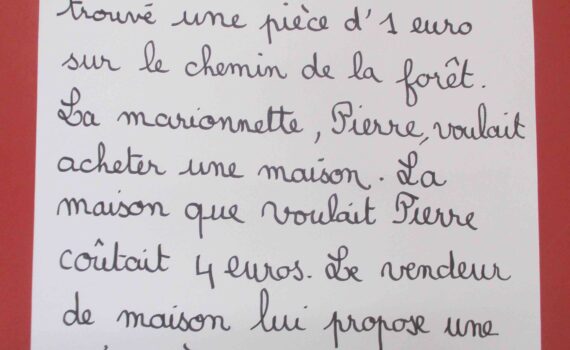 trouvé une pièce d'1 euro
sur le chemin de la forêt.
La marionnette, Pierre, voulait
acheter une maison. La
maison que voulait Pierre
coûtait 4 euros. Le vendeur
de maison lui propose une